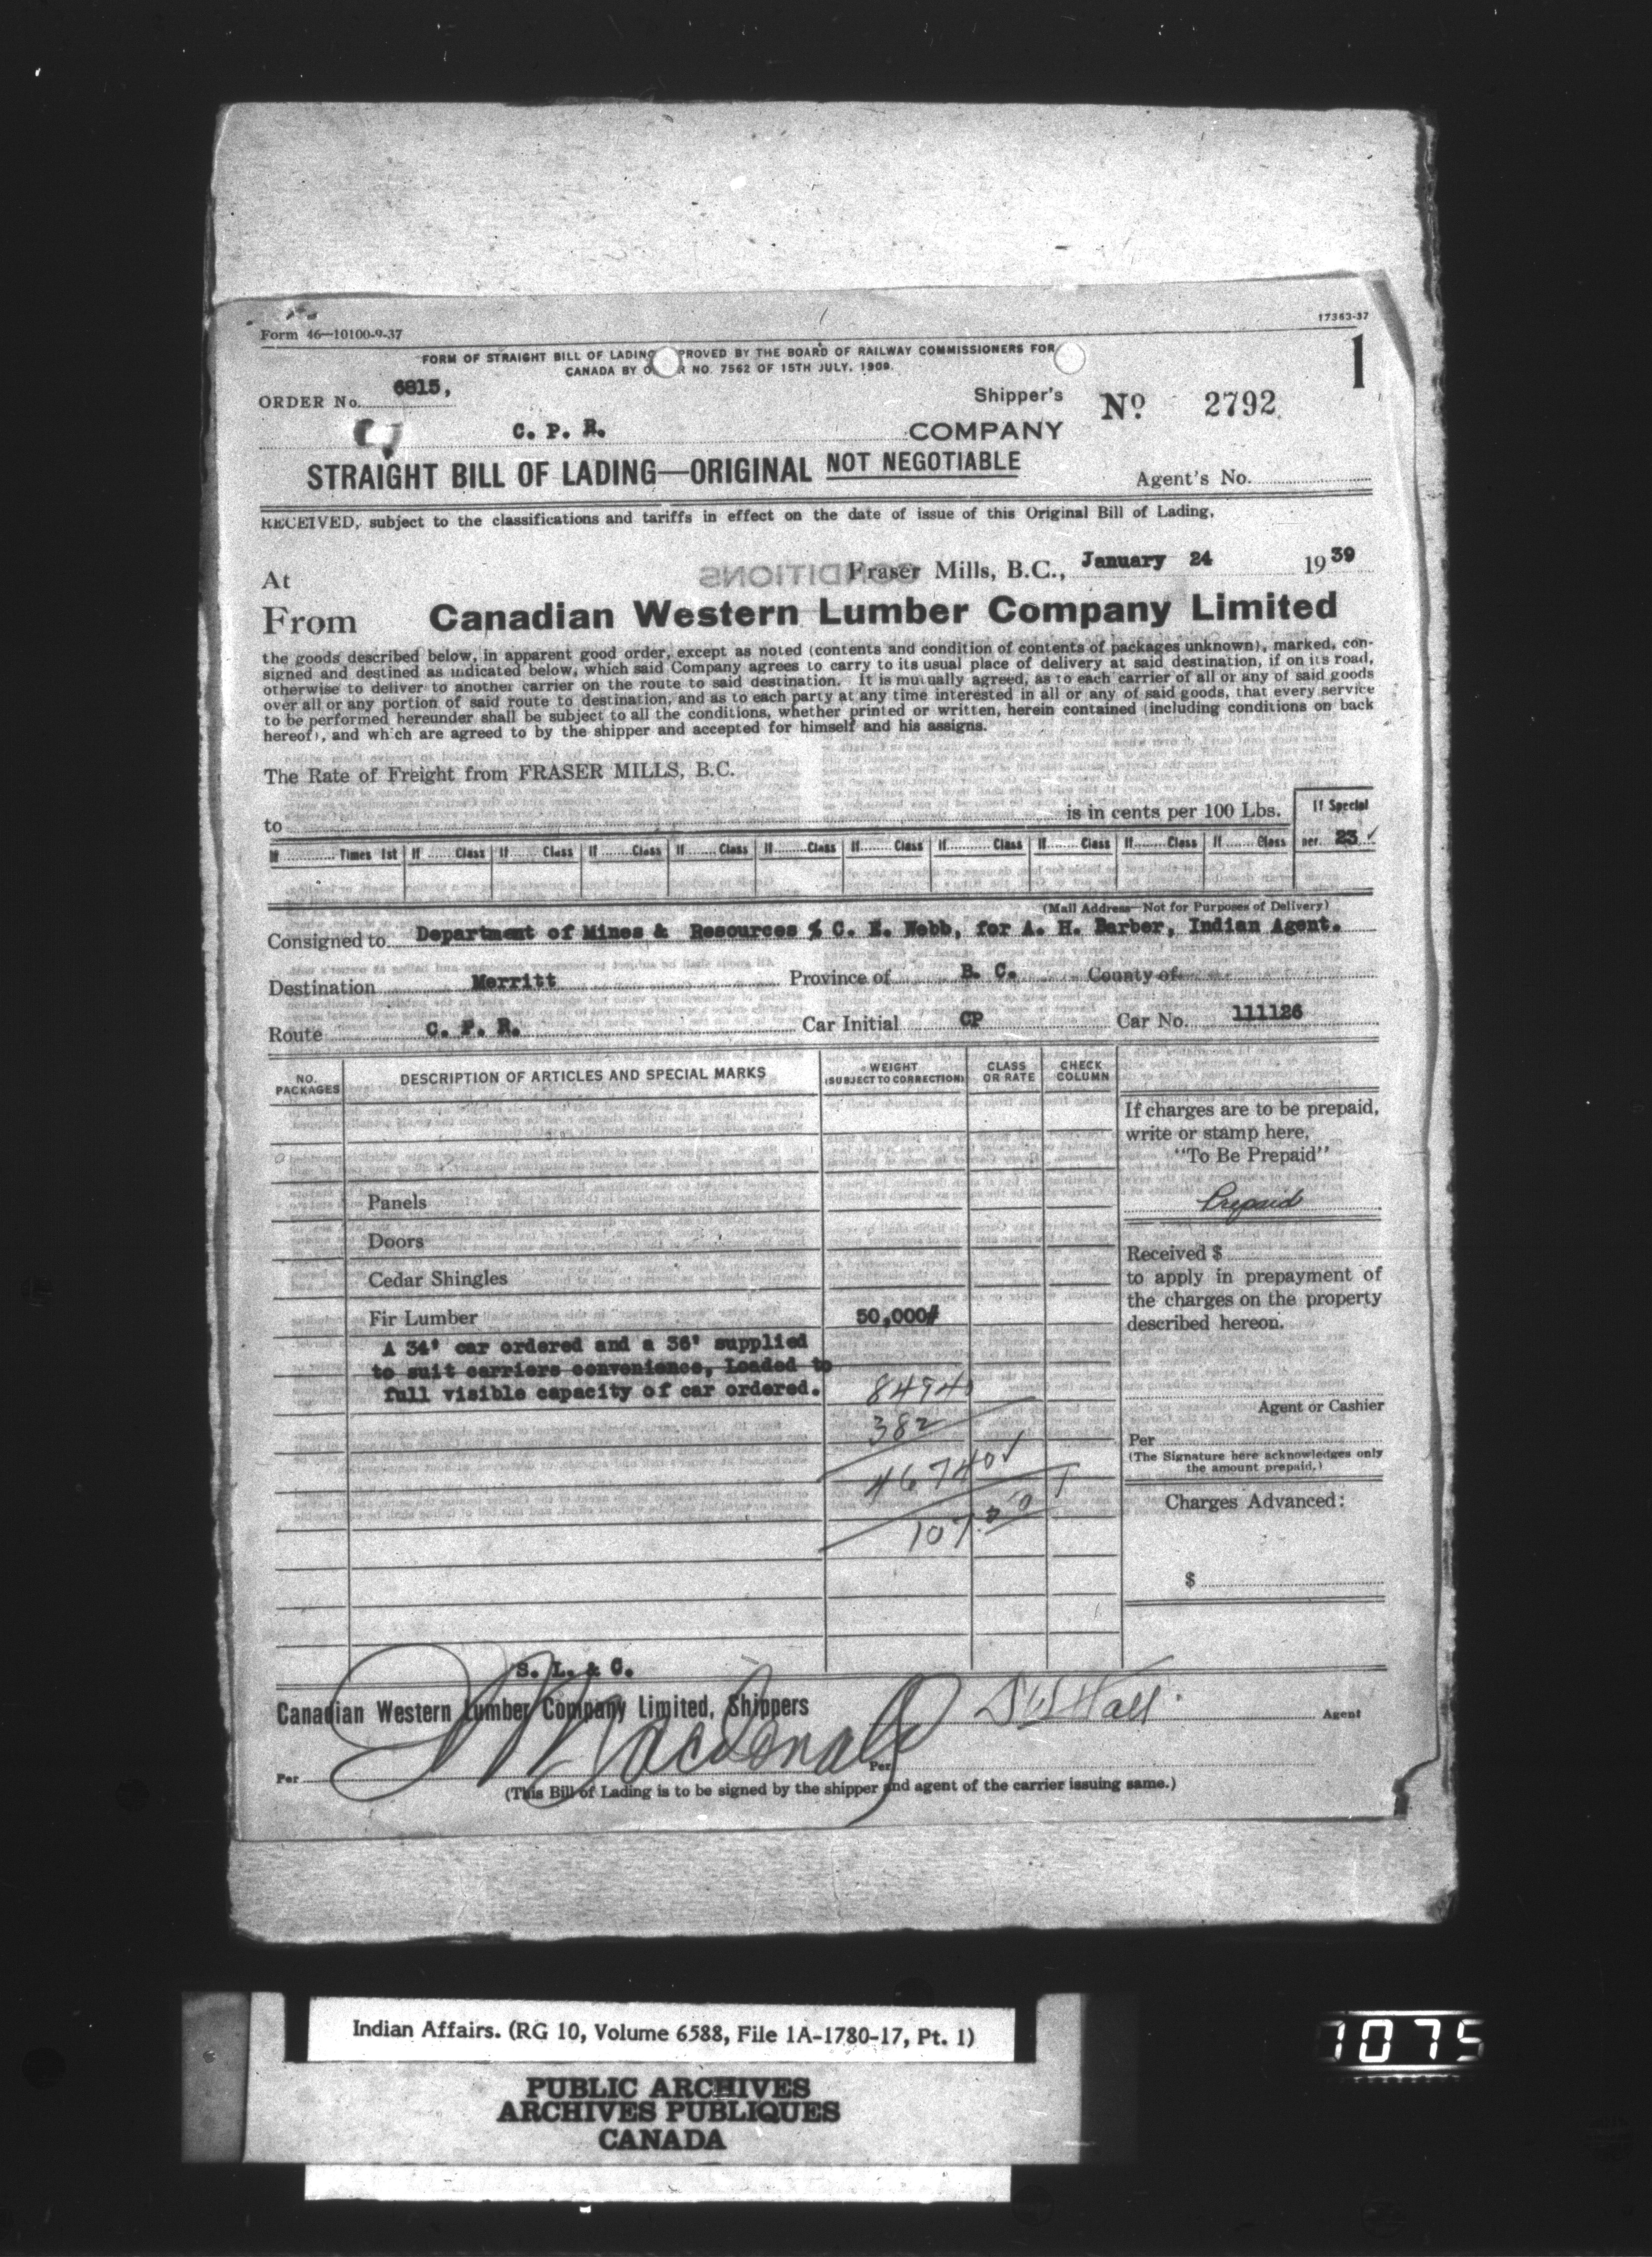 Form 46—10100-9-37
17363-37
FORM OF STRAIGHT BILL OF LADING PROVED BY THE BOARD OF RAILWAY COMMISSIONERS FOR
CANADA BY O R NO. 7562 OF 15TH JULY, 1909.
1
ORDER No. 6815,
Shipper's No 2792
C. P. R. COMPANY
STRAIGHT BILL OF LADING—ORIGINAL NOT NEGOTIABLE
Agent's No.
RECEIVED, subject to the classifications and tariffs in effect on the date of issue of this Original Bill of Lading,
CONDITIONS
At Fraser Mills, B.C., January 24 1939
From Canadian Western Lumber Company Limited
the goods described below, in apparent good order, except as noted (contents and condition of contents of packages unknown), marked, con-
signed and destined as indicated below, which said Company agrees to carry to its usual place of delivery at said destination, if on its road,
otherwise to deliver to another carrier on the route to said destination. It is mutually agreed, as to each carrier of all or any of said goods
over all or any portion of said route to destination, and as to each party at any time interested in all or any of said goods, that every service
to be performed hereunder shall be subject to all the conditions, whether printed or written, herein contained (including conditions on back
hereof), and which are agreed to by the shipper and accepted for himself and his assigns.
The Rate of Freight from FRASER MILLS, B.C.
to is in cents per 100 Lbs.
If Special
per 23 ✓
If Times 1st If Class If Class If Class If Class If Class If Class If Class If Class If Class If Class
(Mail Address—Not for Purposes of Delivery)
Consigned to Department of Mines & Resources % C. E. Webb, for A. H. Barber, Indian Agent.
Destination Merritt Province of B. C. County of
Route C. P. R. Car Initial CP Car No. 111126
NO. PACKAGES DESCRIPTION OF ARTICLES AND SPECIAL MARKS WEIGHT (SUBJECT TO CORRECTION) CLASS OR RATE CHECK COLUMN
If charges are to be prepaid,
write or stamp here,
"To Be Prepaid"
Prepaid
Panels
Doors
Cedar Shingles
Fir Lumber 50,000#
A 34' car ordered and a 36' supplied
to suit carriers convenience, Loaded to
full visible capacity of car ordered.
84940
382
46740 ✓
107.50
Received $
to apply in prepayment of
the charges on the property
described hereon.
Agent or Cashier
Per
(The Signature here acknowledges only
the amount prepaid.)
Charges Advanced:
$
S. L. & C.
Canadian Western Lumber Company Limited, Shippers
Hall Agent
Per MacDonald Per
(This Bill of Lading is to be signed by the shipper and agent of the carrier issuing same.)
Indian Affairs. (RG 10, Volume 6588, File 1A-1780-17, Pt. 1)
PUBLIC ARCHIVES
ARCHIVES PUBLIQUES
CANADA
1075